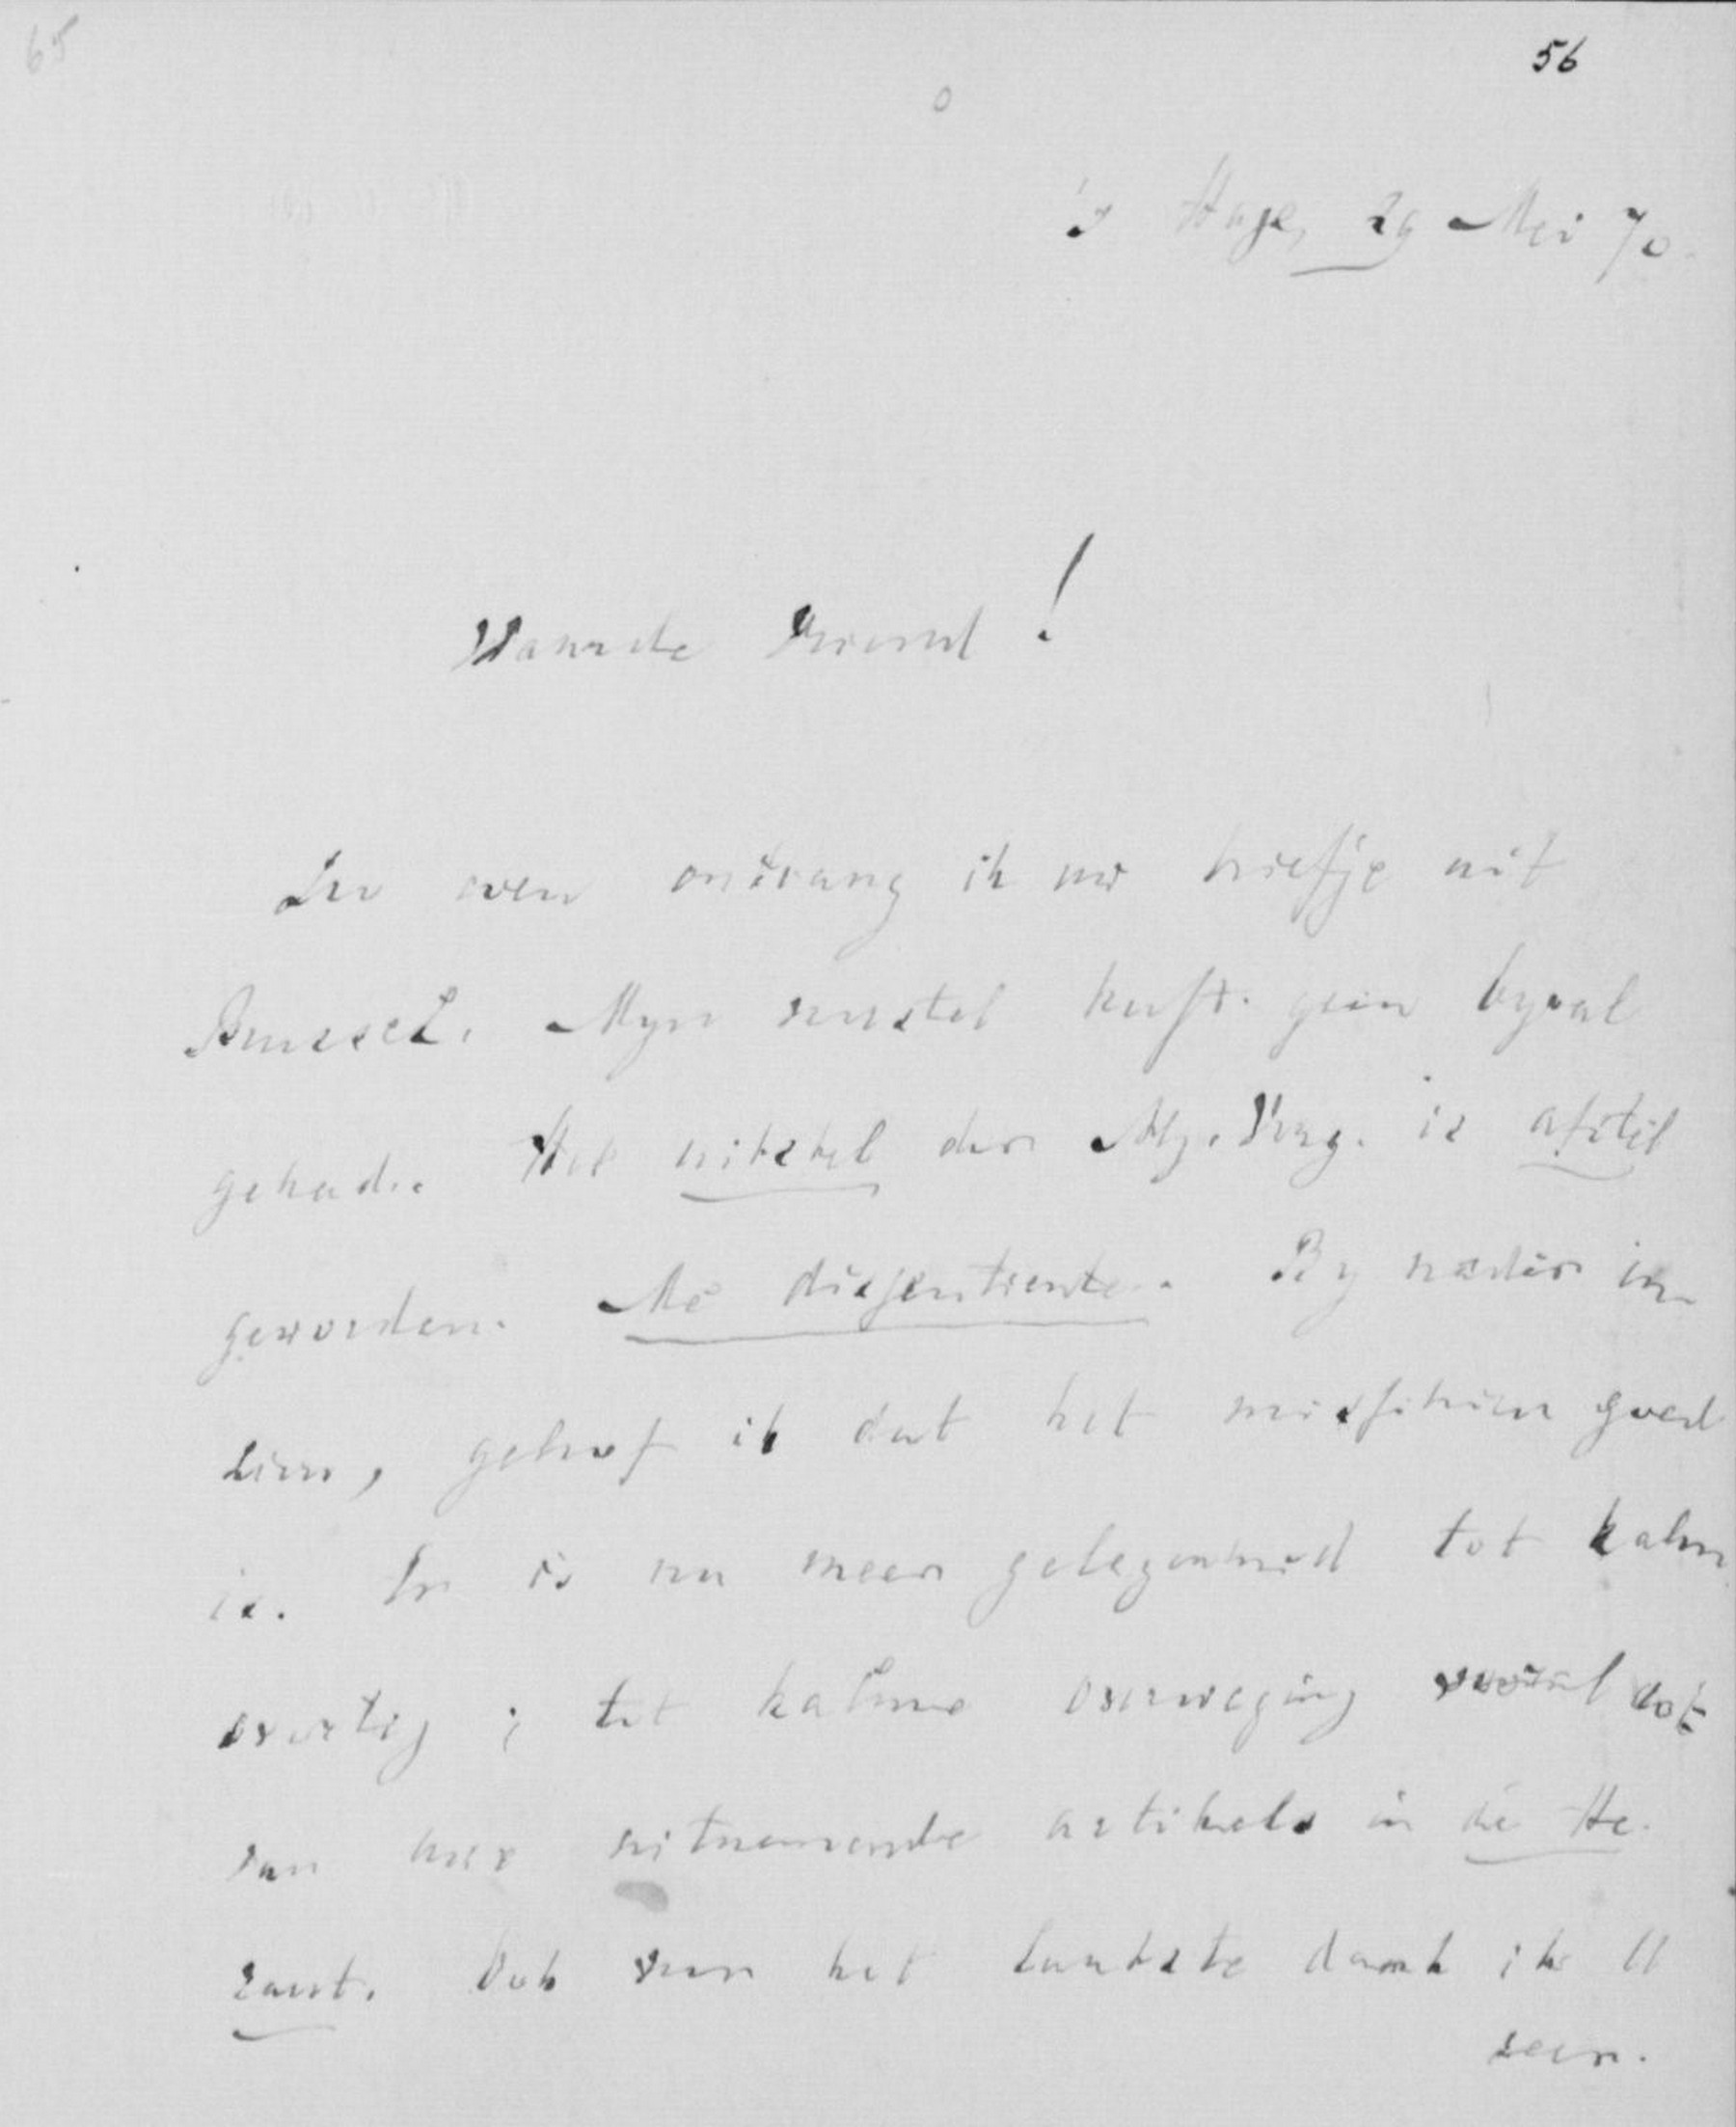 65
56
's Hage, 29 Mei 70.
Waarde Vriend!
Zoo even ontvang ik uw briefje uit
Brussel. Myn voorstel heeft geen byval
gehad. Het uitstel der Alg. Verg. is afstel
geworden. Me dissentiente. By nader in
zien, geloof ik dat het misschien goed
is. Er is nu meer gelegenheid tot kalm
overleg; tot kalme overweging vooral ook
van uwe uitnemende artikels in de He
raut. Ook voor het laatste dank ik U
zeer.